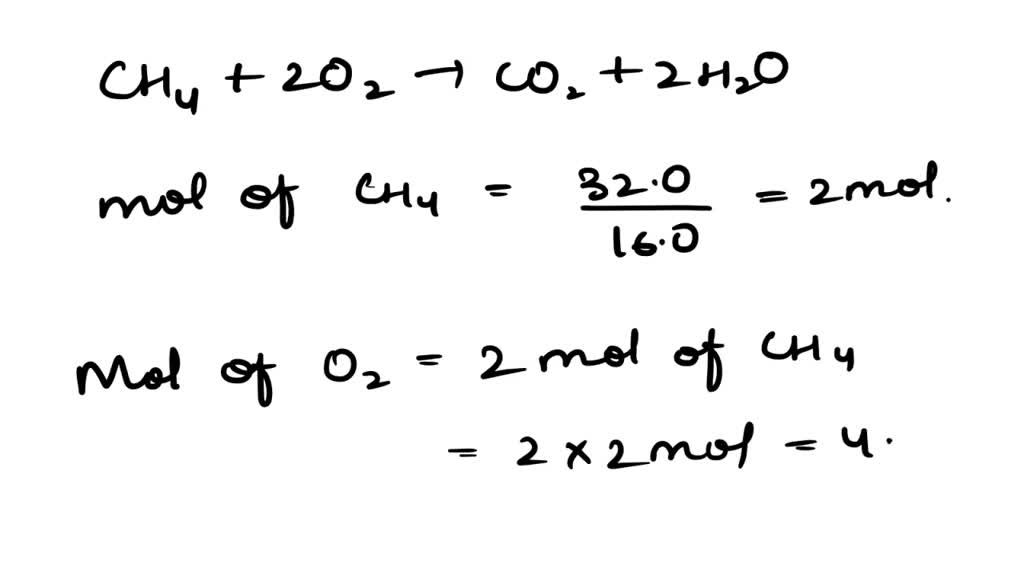 CH₄ + 2O₂ → CO₂ + 2H₂O
mol of CH₄ = 32.0/16.0 = 2mol.
Mol of O₂ = 2 mol of CH₄
= 2 × 2mol = 4.